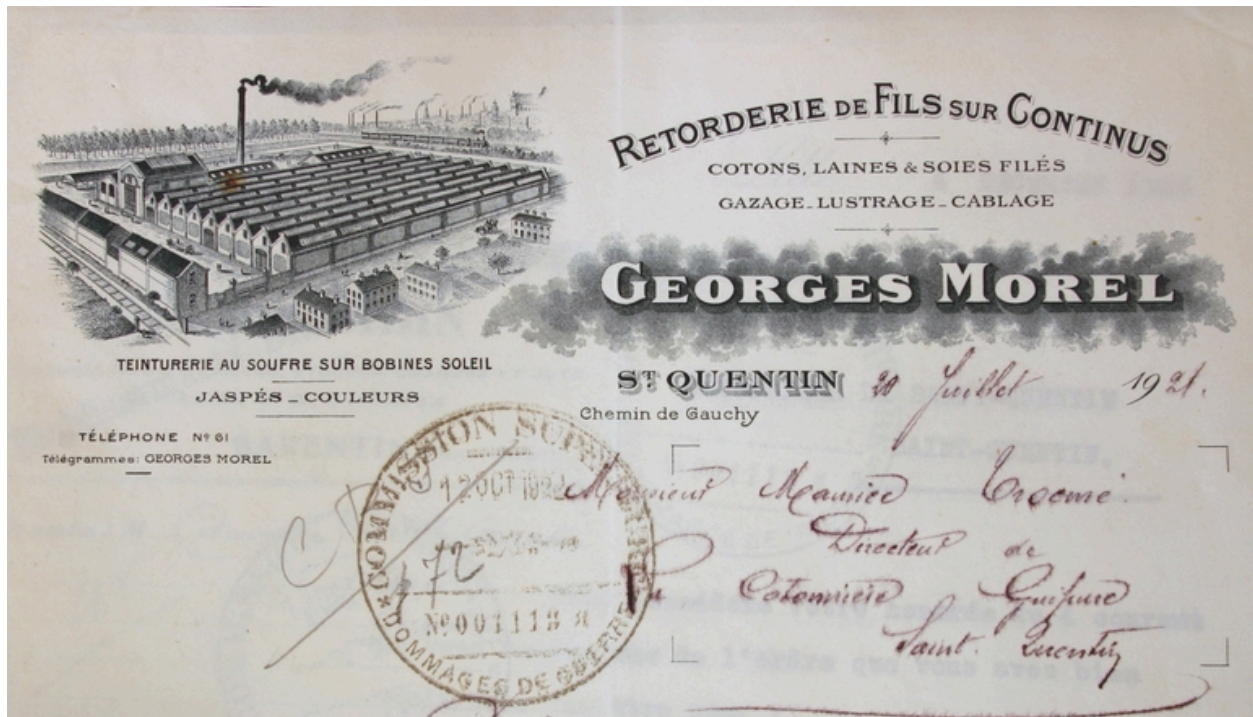 RETORDERIE DE FILS SUR CONTINUS
COTONS, LAINES & SOIES FILÉS
GAZAGE_LUSTRAGE_CABLAGE
GEORGES MOREL
TEINTURERIE AU SOUFRE SUR BOBINES SOLEIL
JASPÉS _ COULEURS
TÉLÉPHONE Nº 61
Télégrammes: GEORGES MOREL
ST QUENTIN 20 Juillet 1921.
Chemin de Gauchy
COMMISSION SUPÉRIEURE
12 OCT
72
Nº 001118
DOMMAGES DE GUERRE
Monsieur Maurice
Directeur de
La Cotonnière Guipure
Saint-Quentin
SAINT-QUENTIN.
de l'ordre que vous avez bien